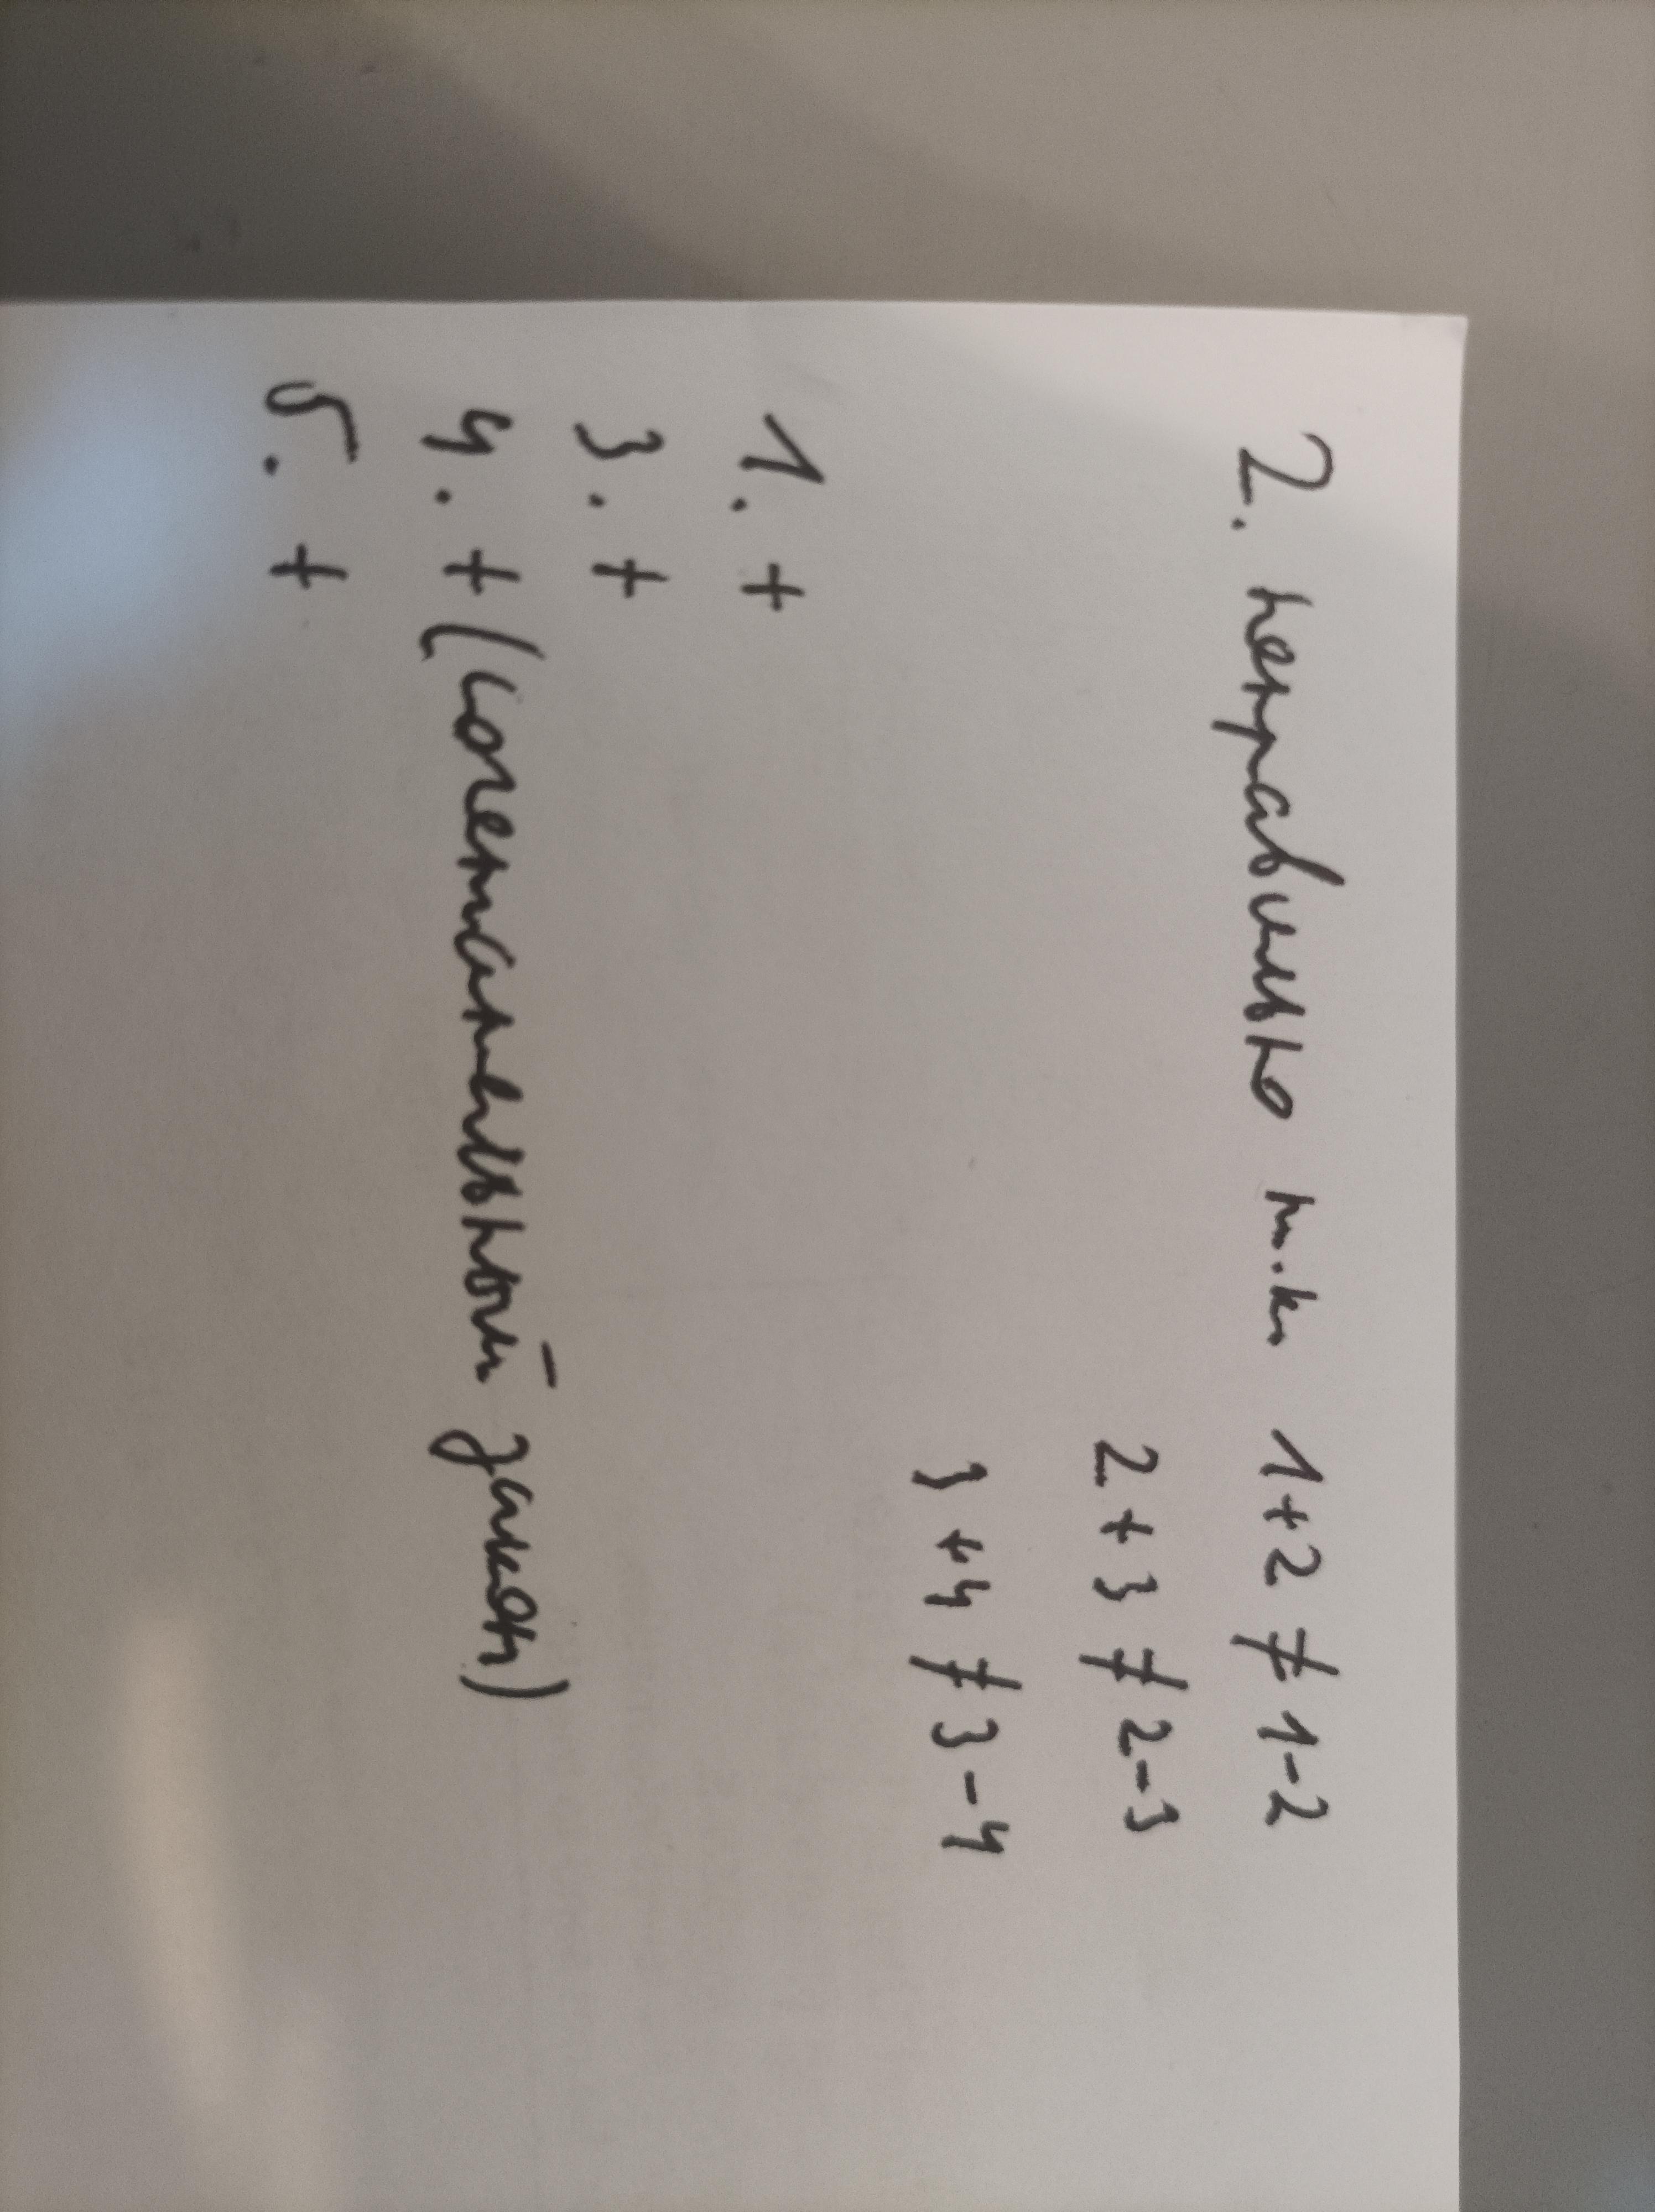 2. неправильно т.к. 1+2 ≠ 1-2
2+3 ≠ 2-3
3+4 ≠ 3-4
1. +
3. +
4. + (сочетательный закон)
5. +